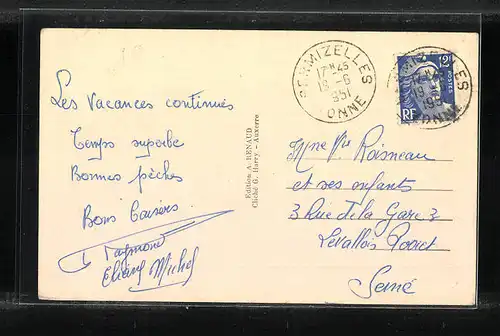 Les Vacances continues
Temps superbe
Bonnes pêches
Bons baisers
Raymond
Eliane Michel
Edition A. RENAUD
Cliché G. Harry - Auxerre
SERMIZELLES
17H45
19-6
1951
YONNE
12F
POSTES
RF
Mme Vve Roisneau
et ses enfants
3 Rue de la Gare 3
Levallois Perret
Seine